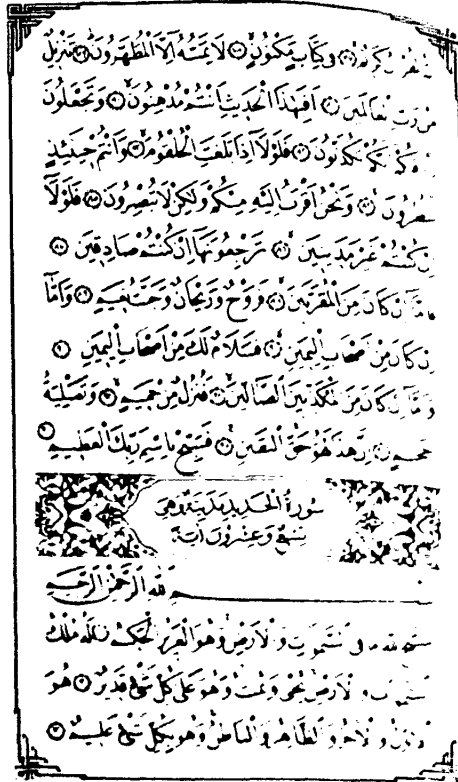 لَقُرْاٰنٌ كَر۪يمٌۙ ف۪ي كِتَابٍ مَكْنُونٍۙ لَا يَمَسُّهُٓ اِلَّا الْمُطَهَّرُونَۜ تَنْز۪يلٌ
مِنْ رَبِّ الْعَالَم۪ينَ اَفَبِهٰذَا الْحَد۪يثِ اَنْتُمْ مُدْهِنُونَۙ وَتَجْعَلُونَ
رِزْقَكُمْ اَنَّكُمْ تُكَذِّبُونَ فَلَوْلَٓا اِذَا بَلَغَتِ الْحُلْقُومَۙ وَاَنْتُمْ ح۪ينَئِذٍ
تَنْظُرُونَۙ وَنَحْنُ اَقْرَبُ اِلَيْهِ مِنْكُمْ وَلٰكِنْ لَا تُبْصِرُونَ فَلَوْلَٓا
اِنْ كُنْتُمْ غَيْرَ مَد۪ين۪ينَۙ تَرْجِعُونَهَٓا اِنْ كُنْتُمْ صَادِق۪ينَ
فَاَمَّٓا اِنْ كَانَ مِنَ الْمُقَرَّب۪ينَۙ فَرَوْحٌ وَرَيْحَانٌ وَجَنَّتُ نَع۪يمٍ وَاَمَّٓا
اِنْ كَانَ مِنْ اَصْحَابِ الْيَم۪ينِۙ فَسَلَامٌ لَكَ مِنْ اَصْحَابِ الْيَم۪ينِ
وَاَمَّٓا اِنْ كَانَ مِنَ الْمُكَذِّب۪ينَ الضَّٓالّ۪ينَۙ فَنُزُلٌ مِنْ حَم۪يمٍۙ وَتَصْلِيَةُ
جَح۪يمٍ اِنَّ هٰذَا لَهُوَ حَقُّ الْيَق۪ينِۚ فَسَبِّحْ بِاسْمِ رَبِّكَ الْعَظ۪يمِ
سُورَةُ الْحَد۪يدِ مَدَنِيَّةٌ وَهِيَ
تِسْعٌ وَعِشْرُونَ اٰيَةً
بِسْمِ اللّٰهِ الرَّحْمٰنِ الرَّح۪يمِ
سَبَّحَ لِلّٰهِ مَا فِي السَّمٰوَاتِ وَالْاَرْضِۚ وَهُوَ الْعَز۪يزُ الْحَك۪يمُ لَهُ مُلْكُ
السَّمٰوَاتِ وَالْاَرْضِۚ يُحْي۪ وَيُم۪يتُۚ وَهُوَ عَلٰى كُلِّ شَيْءٍ قَد۪يرٌ هُوَ
الْاَوَّلُ وَالْاٰخِرُ وَالظَّاهِرُ وَالْبَاطِنُۚ وَهُوَ بِكُلِّ شَيْءٍ عَل۪يمٌ